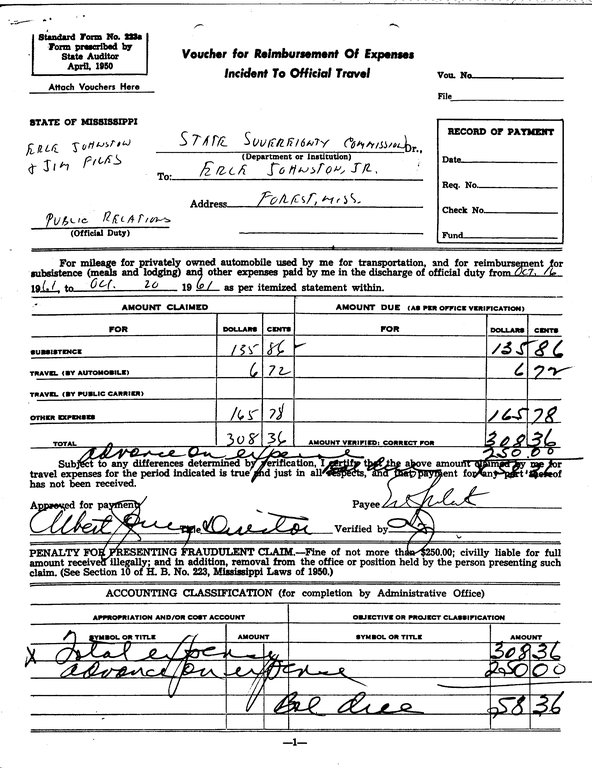 Standard Form No. 223a
Form prescribed by
State Auditor
April, 1950
Attach Vouchers Here
Voucher for Reimbursement Of Expenses
Incident To Official Travel
Vou. No.
File
STATE OF MISSISSIPPI
ERLE JOHNSTON
& JIM PILES
STATE SOVEREIGNTY COMMISSION Dr.,
(Department or Institution)
To: ERLE JOHNSTON, JR.
Address FOREST, MISS.
PUBLIC RELATIONS
(Official Duty)
RECORD OF PAYMENT
Date
Req. No.
Check No.
Fund
For mileage for privately owned automobile used by me for transportation, and for reimbursement for
subsistence (meals and lodging) and other expenses paid by me in the discharge of official duty from OCT. 16
1961, to Oct. 20 1961 as per itemized statement within.
AMOUNT CLAIMED AMOUNT DUE (AS PER OFFICE VERIFICATION)
FOR DOLLARS CENTS FOR DOLLARS CENTS
SUBSISTENCE 135 86 135 86
TRAVEL (BY AUTOMOBILE) 6 72 6 72
TRAVEL (BY PUBLIC CARRIER)
OTHER EXPENSES 165 78 165 78
TOTAL 308 36 AMOUNT VERIFIED: CORRECT FOR 308 36
advance on expense 250.00
Subject to any differences determined by verification, I certify that the above amount claimed by me for
travel expenses for the period indicated is true and just in all respects, and that payment for any part thereof
has not been received.
Approved for payment Payee
Albert Director Verified by
PENALTY FOR PRESENTING FRAUDULENT CLAIM.—Fine of not more than $250.00; civilly liable for full
amount received illegally; and in addition, removal from the office or position held by the person presenting such
claim. (See Section 10 of H. B. No. 223, Mississippi Laws of 1950.)
ACCOUNTING CLASSIFICATION (for completion by Administrative Office)
APPROPRIATION AND/OR COST ACCOUNT OBJECTIVE OR PROJECT CLASSIFICATION
SYMBOL OR TITLE AMOUNT SYMBOL OR TITLE AMOUNT
X Total expense 308 36
advance on expense 250 00
Bal Due 58 36
—1—